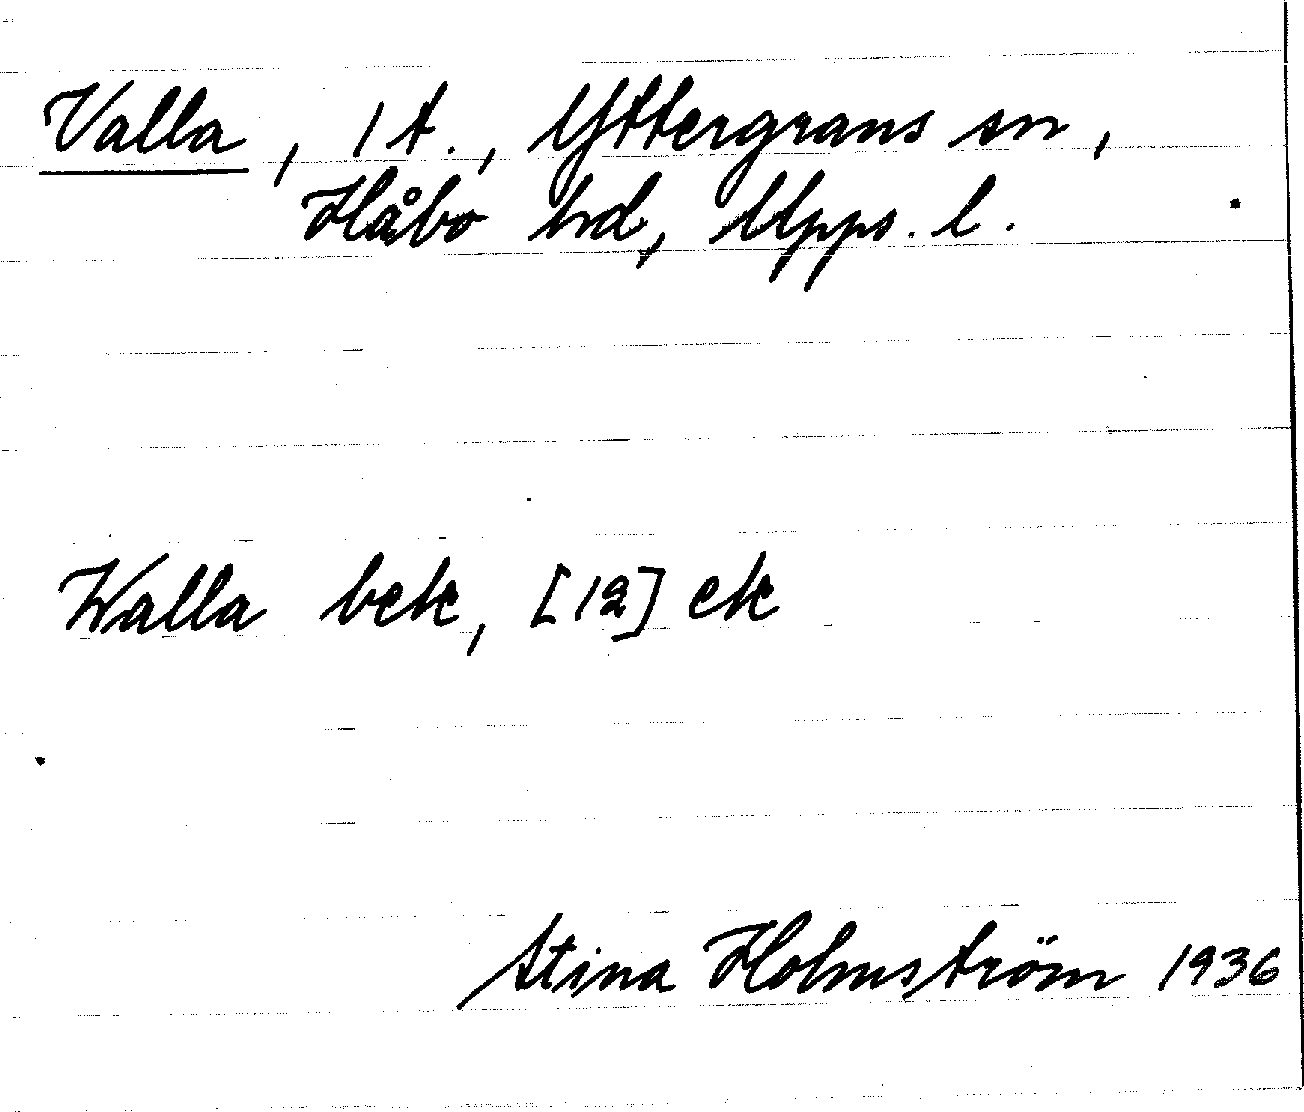 Valla, 1 t., Yttergrans sn,
Håbo hd, Upps. l.
Walla bek, [12] ek
Stina Holmström 1936